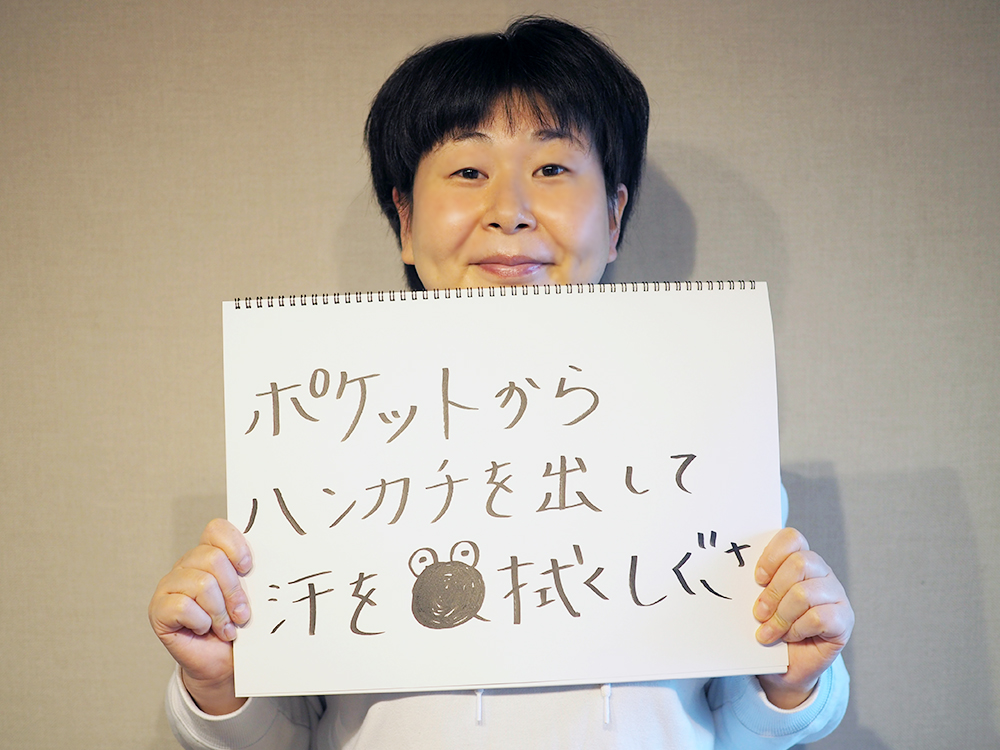 ポケットから
ハンカチを出して
汗を拭くしぐさ